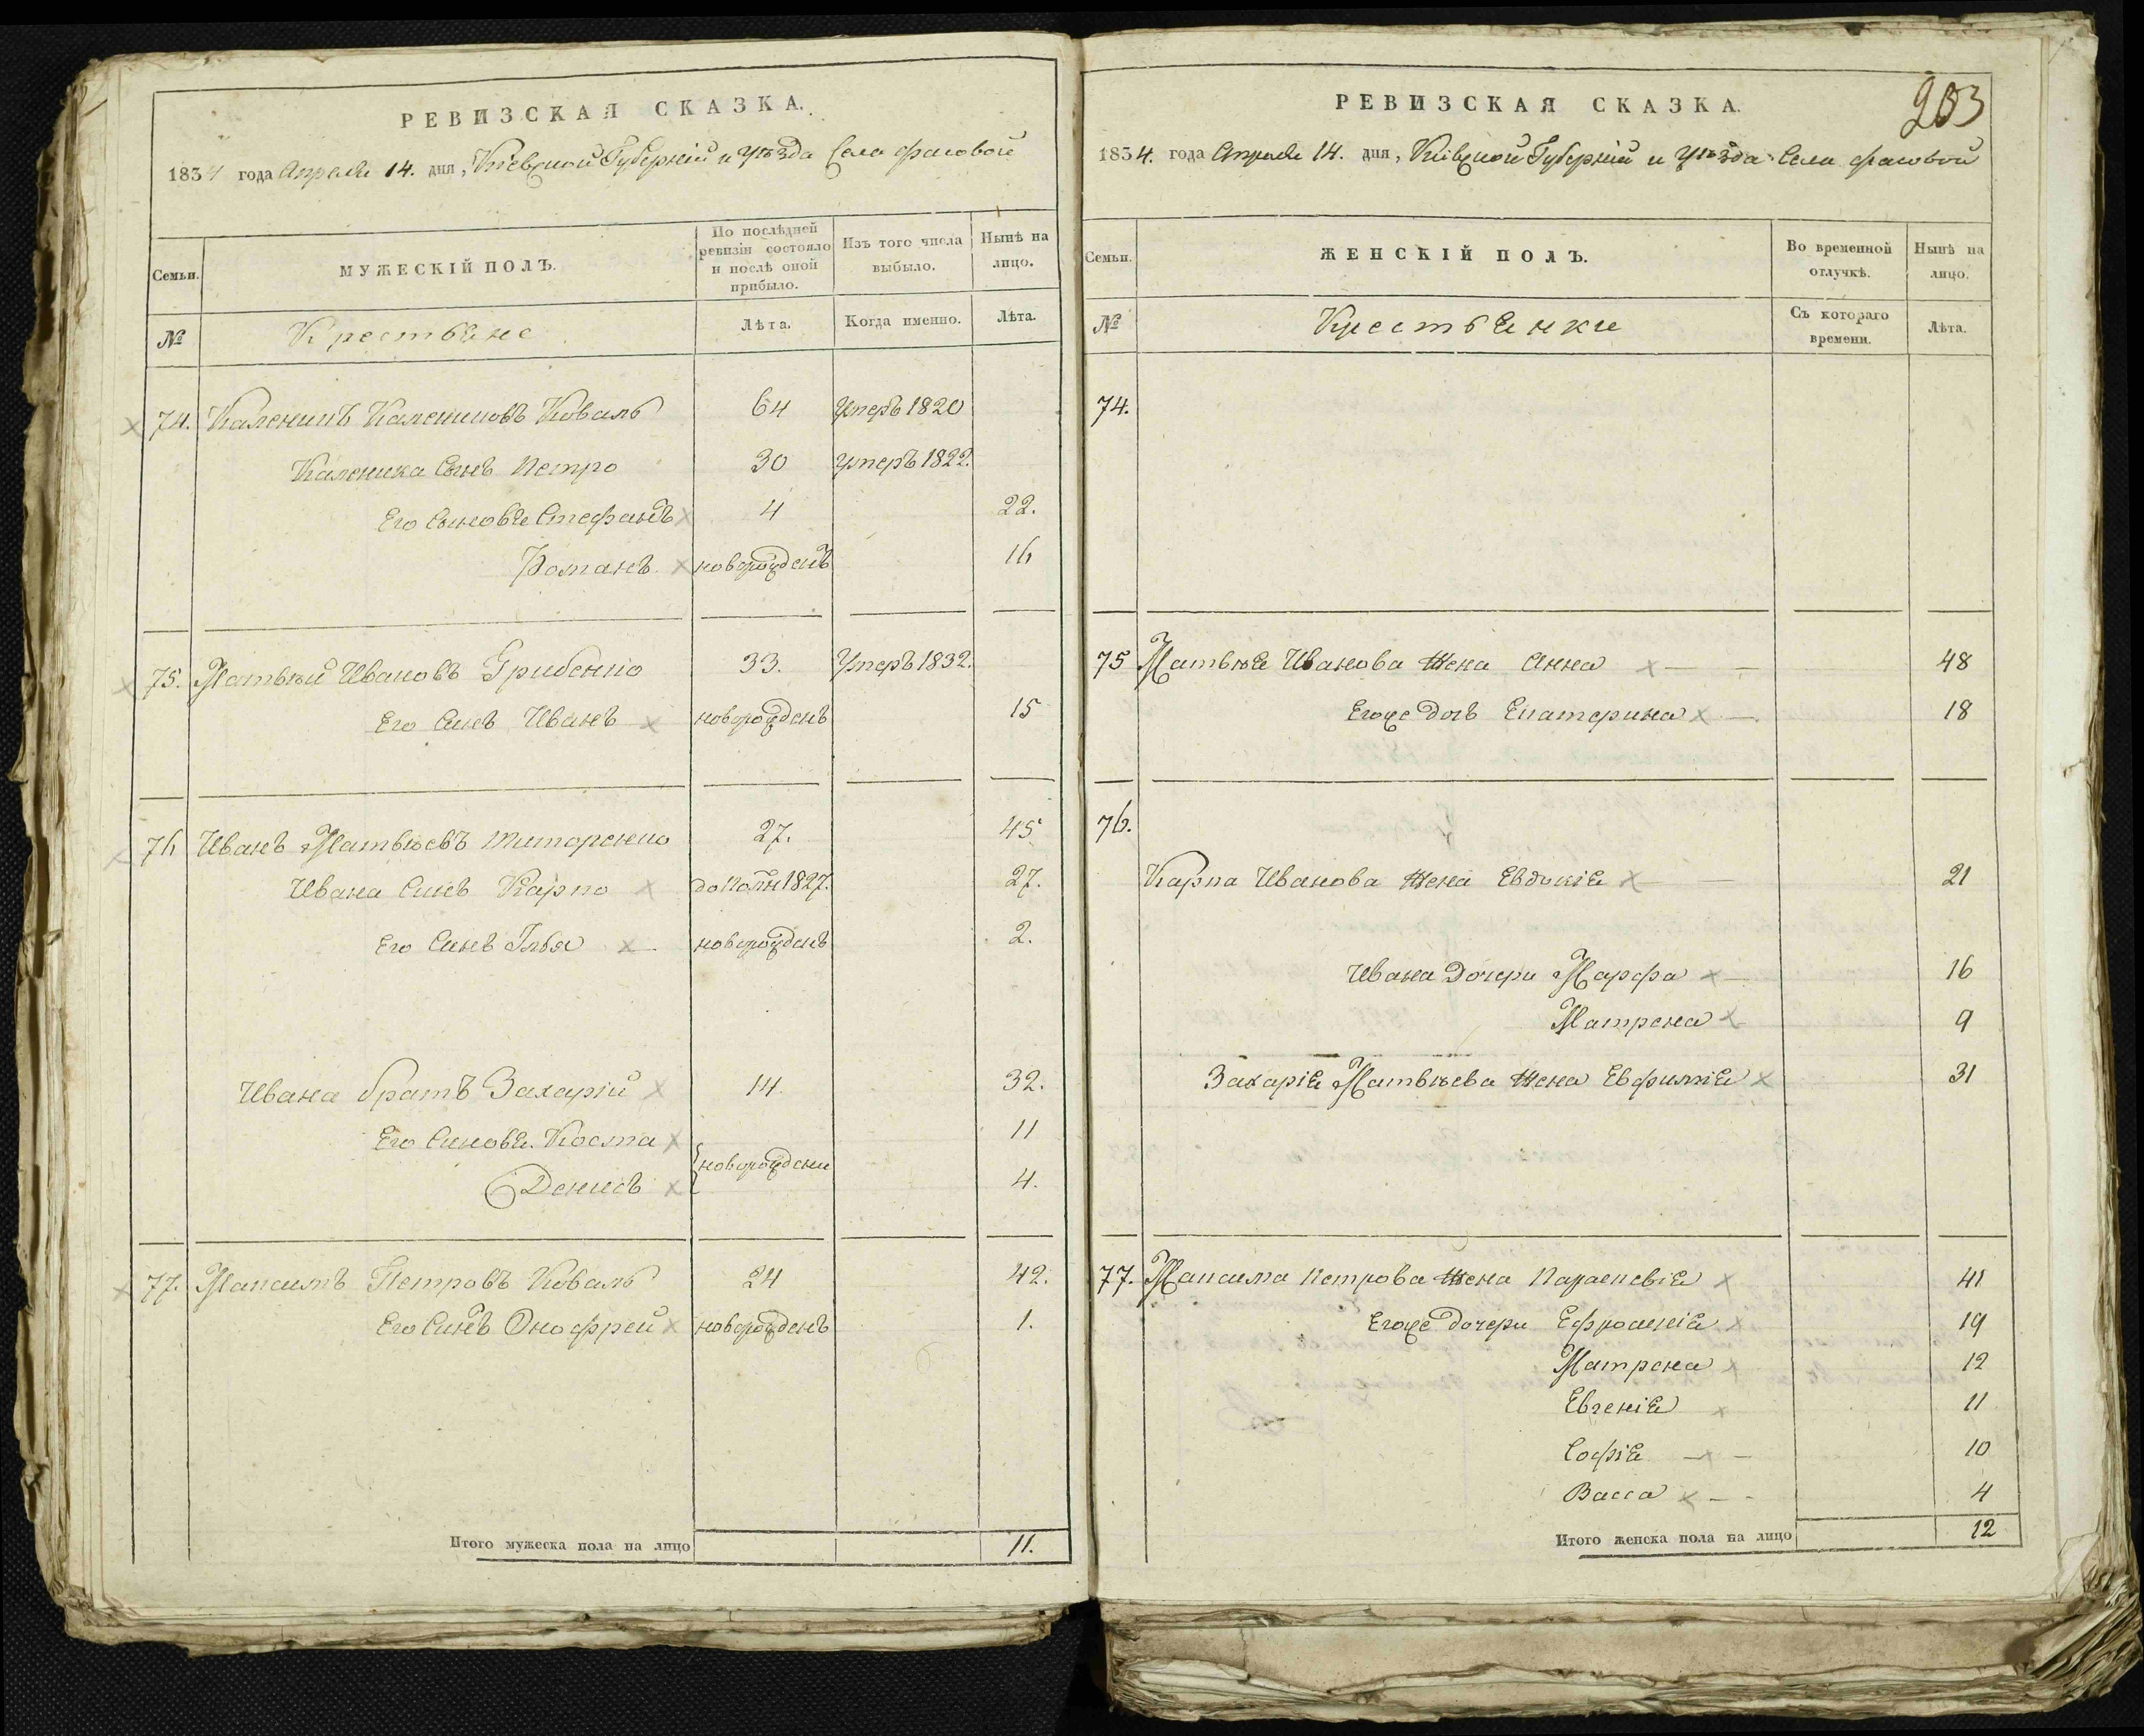 РЕВИЗСКАЯ СКАЗКА.
1834 года Апреля 14. дня, Кіевской Губерніи и уѣзда Села Фасовой
Семьи.
МУЖЕСКІЙ ПОЛЪ.
По послѣдней ревизіи состояло и послѣ оной прибыло.
Изъ того числа выбыло.
Нынѣ на лицо.
№
Крестьяне
Лѣта.
Когда именно.
Лѣта.
74. Каленикъ Калениковъ Коваль 64 умеръ 1820
Каленика Сынъ Петро 30 умеръ 1822.
Его Сыновья Стефанъ 4 22.
Романъ новорожденъ 16
75. Матвѣй Ивановъ Грибенко 33. Умеръ 1832.
Его Синъ Иванъ новорожденъ 15
76 Иванъ Матвѣевъ Титоренко 27. 45
Ивана Синъ Карпо 1827. 27.
Его Синъ Илья новорожденъ 2.
Ивана братъ Захарій 14 32.
Его Синовья Косма 11
новорождени
Денисъ 4.
77. Максимъ Петровъ Коваль 24 42.
Его Синъ Онофрей новорожденъ 1.
Итого мужеска пола на лицо 11.
203
РЕВИЗСКАЯ СКАЗКА.
1834. года Апреля 14. дня, Кіевской Губерніи и уѣзда Села Фасовой
Семьи.
ЖЕНСКІЙ ПОЛЪ.
Во временной отлучкѣ.
Нынѣ на лицо.
№
Крестьянки
Съ котораго времени.
Лѣта.
74.
75 Матвѣя Иванова Жена Анна 48
Егоже дочь Екатерина 18
76.
Карпа Иванова Жена Евдокія 21
Ивана Дочери Марфа 16
Матрена 9
Захарія Матвѣева Жена Евфимія 31
77. Максима Петрова Жена Параскевія 41
Егоже дочери Ефросинія 19
Матрена 12
Евгенія 11
Софія 10
Васса 4
Итого женска пола на лицо 12